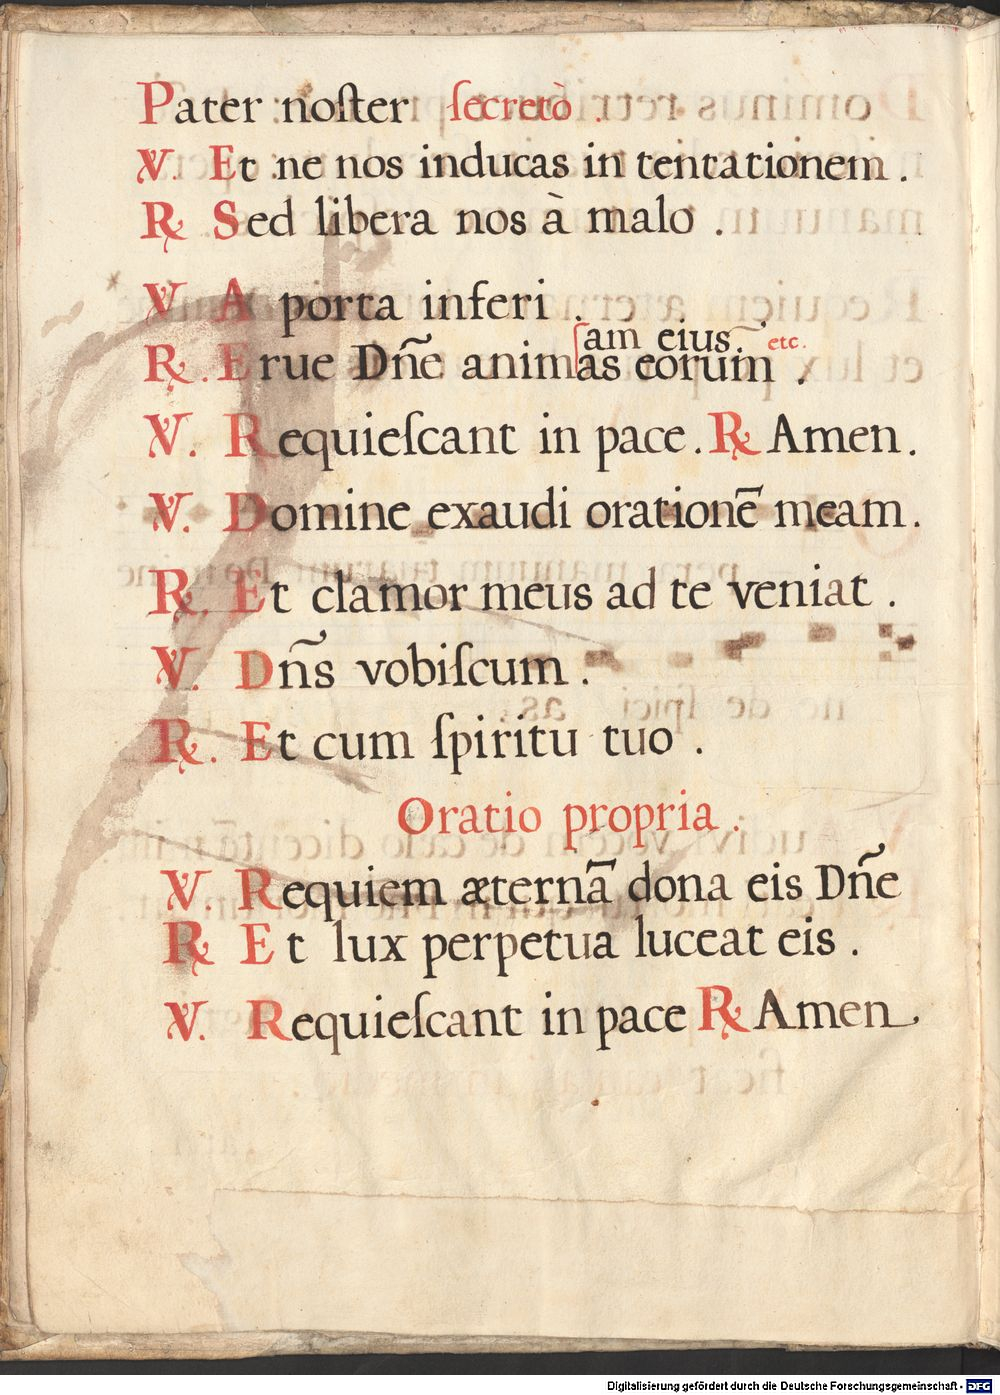 Pater noſter ſecretò .
℣. Et ne nos inducas in tentationem .
℟ Sed libera nos à malo .
℣. A porta inferi .
am eius. etc.
℟. Erue Dn̄e animas eorum .
℣. Requieſcant in pace . ℟ Amen .
℣. Domine exaudi orationē meam .
℟. Et clamor meus ad te veniat .
℣. Dn̄s vobiſcum .
℟. Et cum ſpiritu tuo .
Oratio propria .
℣. Requiem æternā dona eis Dn̄e
℟ Et lux perpetua luceat eis .
℣. Requieſcant in pace ℟ Amen .
Digitalisierung gefördert durch die Deutsche Forschungsgemeinschaft - DFG